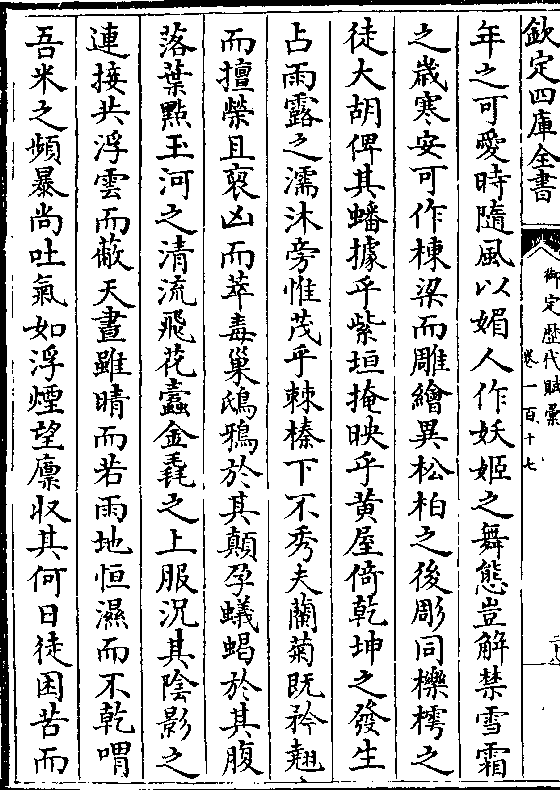 欽定四庫全書
御定歷代賦彙
卷一百十七
年之可愛時隨風以媚人作妖姬之舞態豈解禁雪霜
之歲寒安可作棟梁而雕繪異松柏之後彫同櫟樗之
徒大胡俾其蟠據乎紫垣掩映乎黄屋倚乾坤之發生
占雨露之濡沐旁惟茂乎棘榛下不秀夫蘭菊既矜翹
而擅榮且裒凶而萃毒巢鴟鴉於其顛孕蟻蝎於其腹
落葉點玉河之清流飛花蠧金毳之上服況其陰影之
連接共浮雲而蔽天晝雖晴而若雨地恒濕而不乾喟
吾米之頻暴尚吐氣如浮煙望廪收其何日徒困苦而